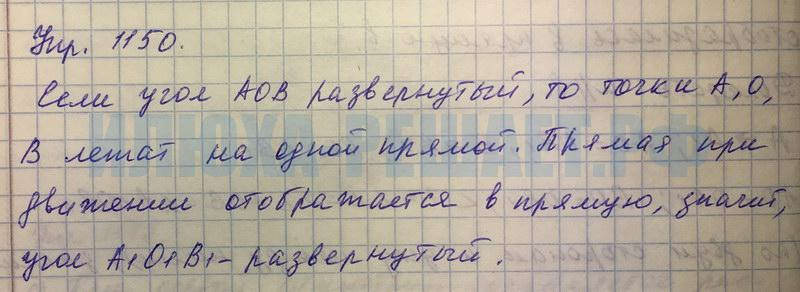 Упр. 1150.
Если угол АОВ развернутый, то точки А, О,
В лежат на одной прямой. Прямая при
движении отображается в прямую, значит,
угол А1О1В1 - развернутый.
ИЛЮХА-РЕШАЕТ.РФ